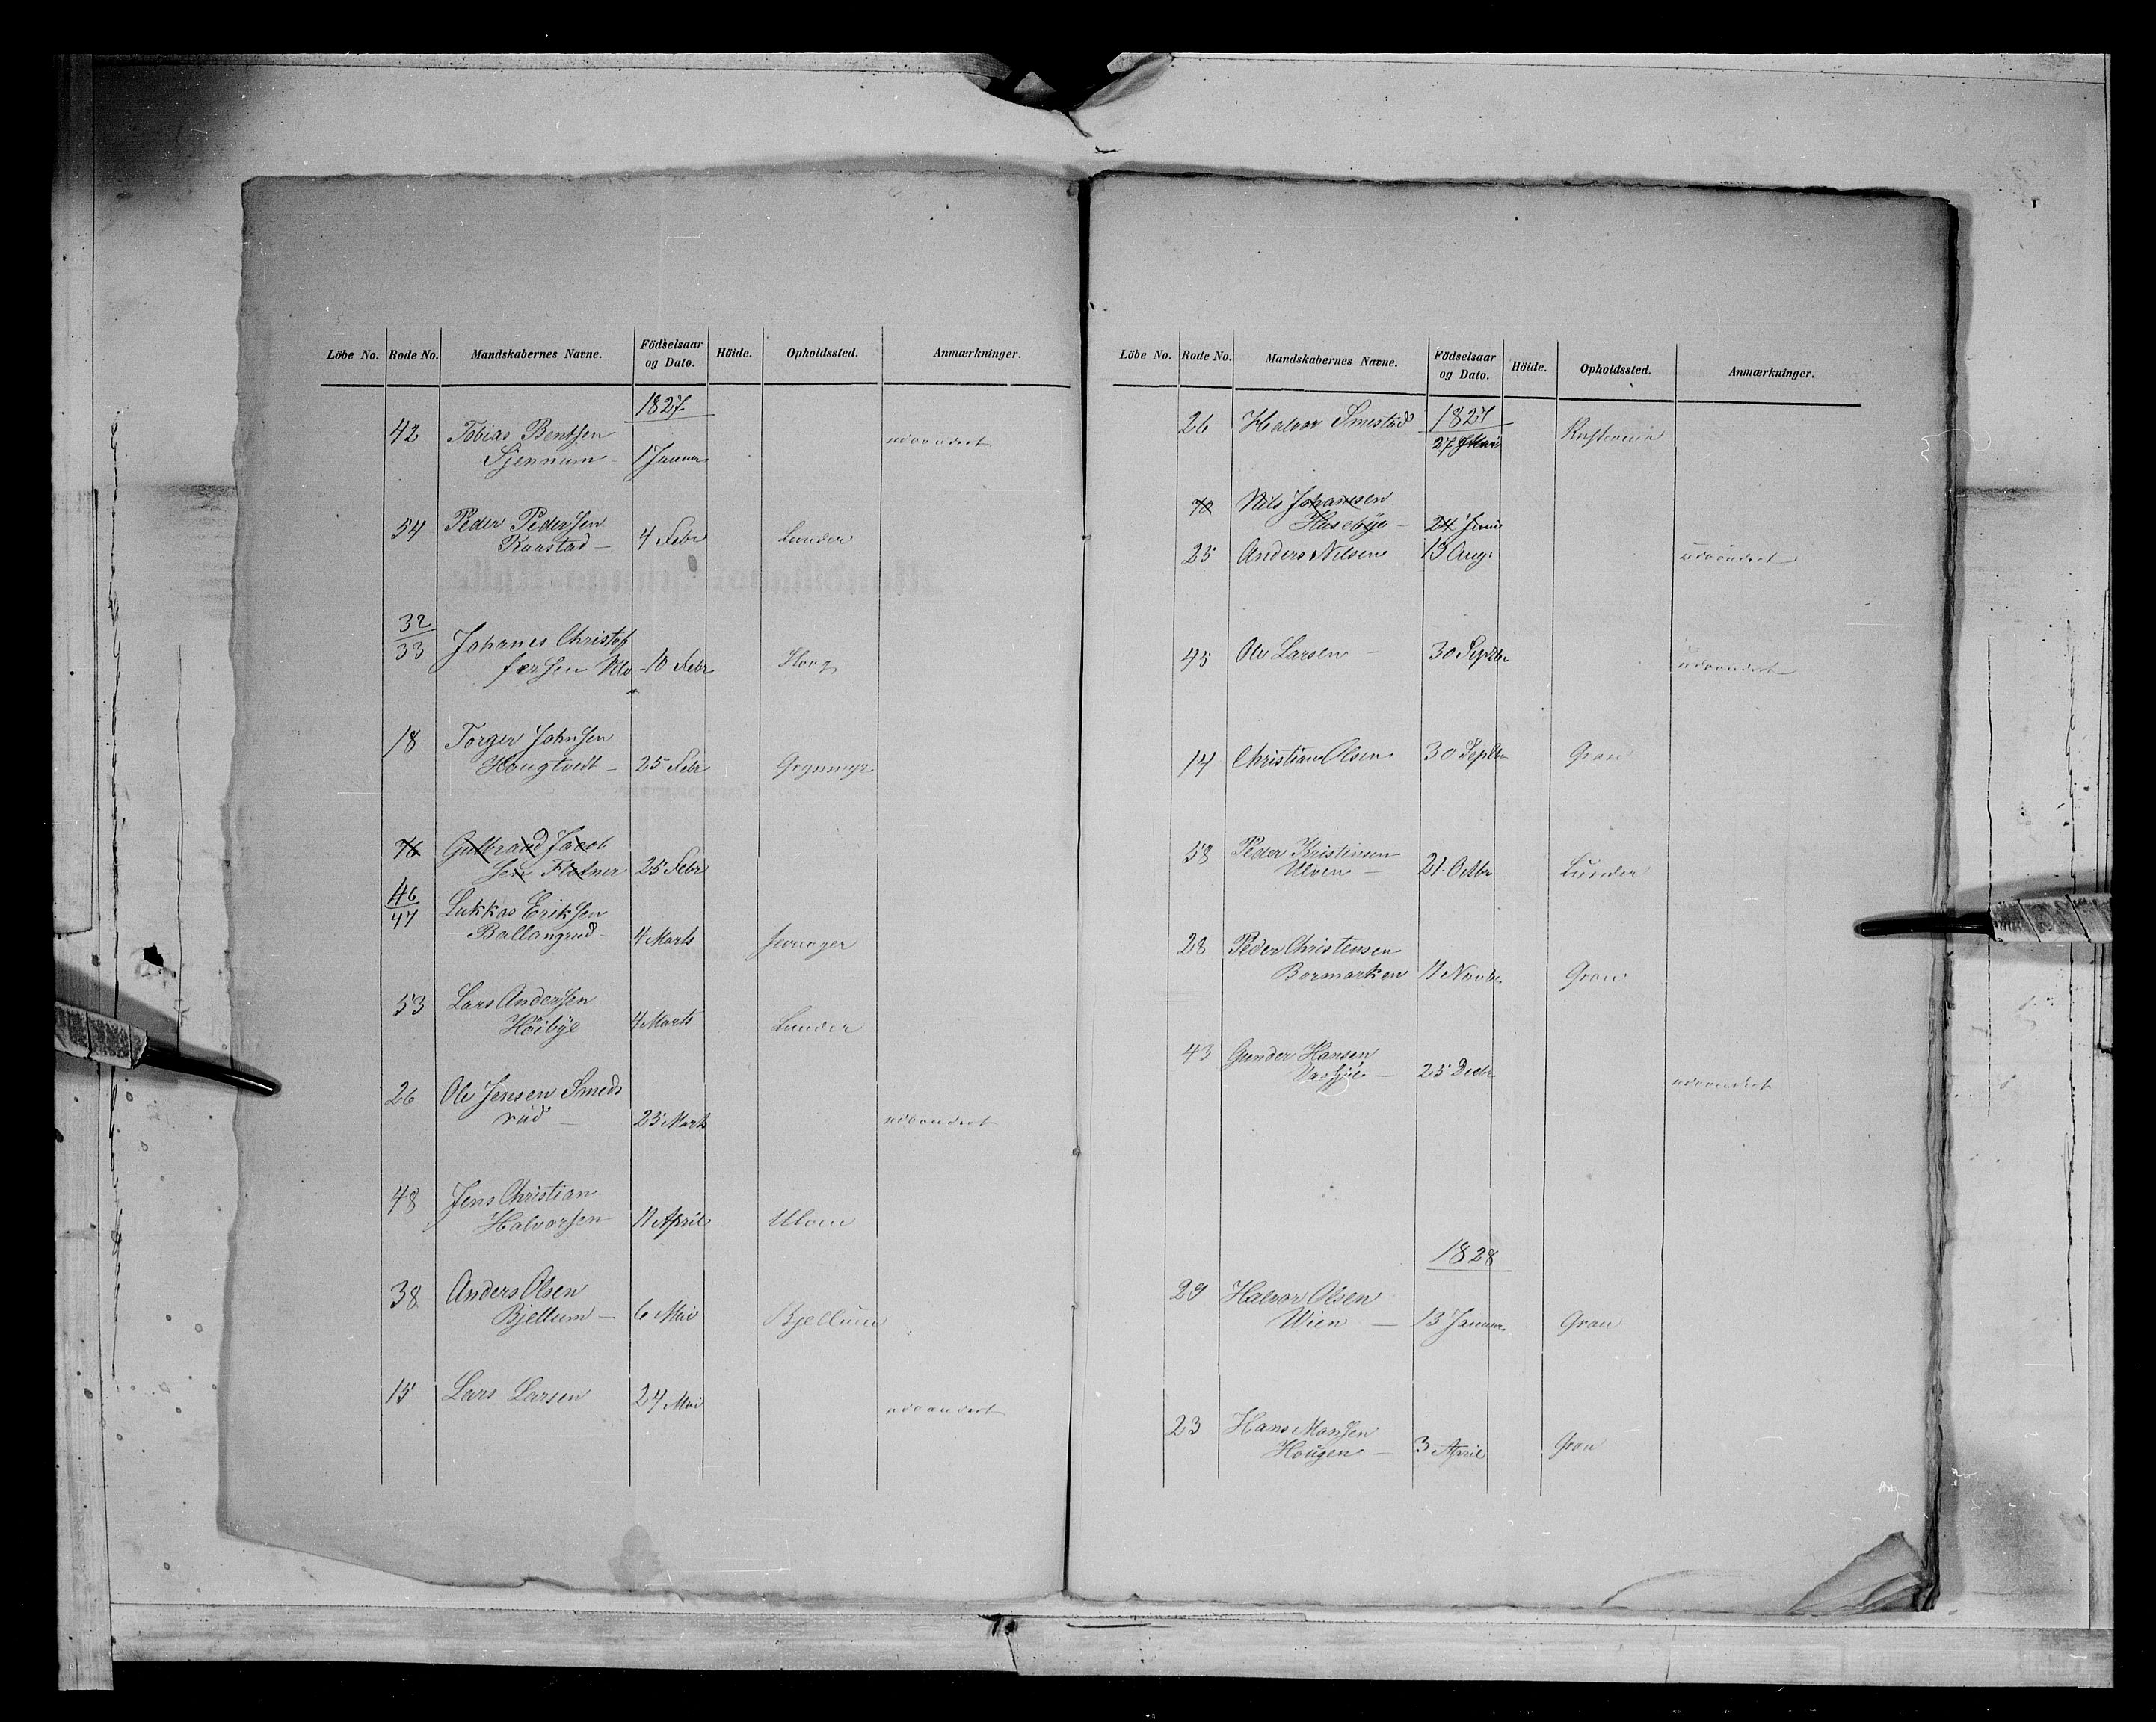 Löbe No. Rode No. Mandskabernes Navne. Födselsaar og Dato. Höide. Opholdssted. Anmærkninger.
1827
42 Tobias Bentsen udvandret
Sjennum - 1 Januar
54 Peder Pedersen
Raastad - 4 Febr Lunder
32/33 Johanes Christof
fersen 10 Febr Haug
18 Torger Johnsen
Hougtvedt - 25 Febr Grynmyr
76 Gulbrand Jacob
sen Flatner 25 Febr
46/47 Lukkas Eriksen
Ballangrud - 4 Marts Jevnager
53 Lars Andersen
Höibye 4 Marts Lunder
26 Ole Jensen Smeds
rud - 25 Marts udvandret
48 Jens Christian
Halvorsen 11 April Ulven
38 Anders Olsen
Bjellum - 6 Mai Bjellum
15 Lars Larsen 24 Mai udvandret
Löbe No. Rode No. Mandskabernes Navne. Födselsaar og Dato. Höide. Opholdssted. Anmærkninger.
1827
26 Halvor Smestad 27 Mai
70 Nils Johansen
Hasebye - 24 Juni
25 Anders Nilsen 13 Aug. udvandret
45 Ole Larsen - 30 Septbr udvandret
14 Christian Olsen 30 Septbr Gran
58 Peder Kristensen
Ulven - 21 Octbr Lunder
28 Peder Christensen
Bormarken 11 Novbr Gran
43 Gunder Hansen
25 Decbr udvandret
1828
29 Halvor Olsen
Wien - 13 Januar Gran
23 Hans Monsen
Hougen - 3 April Gran